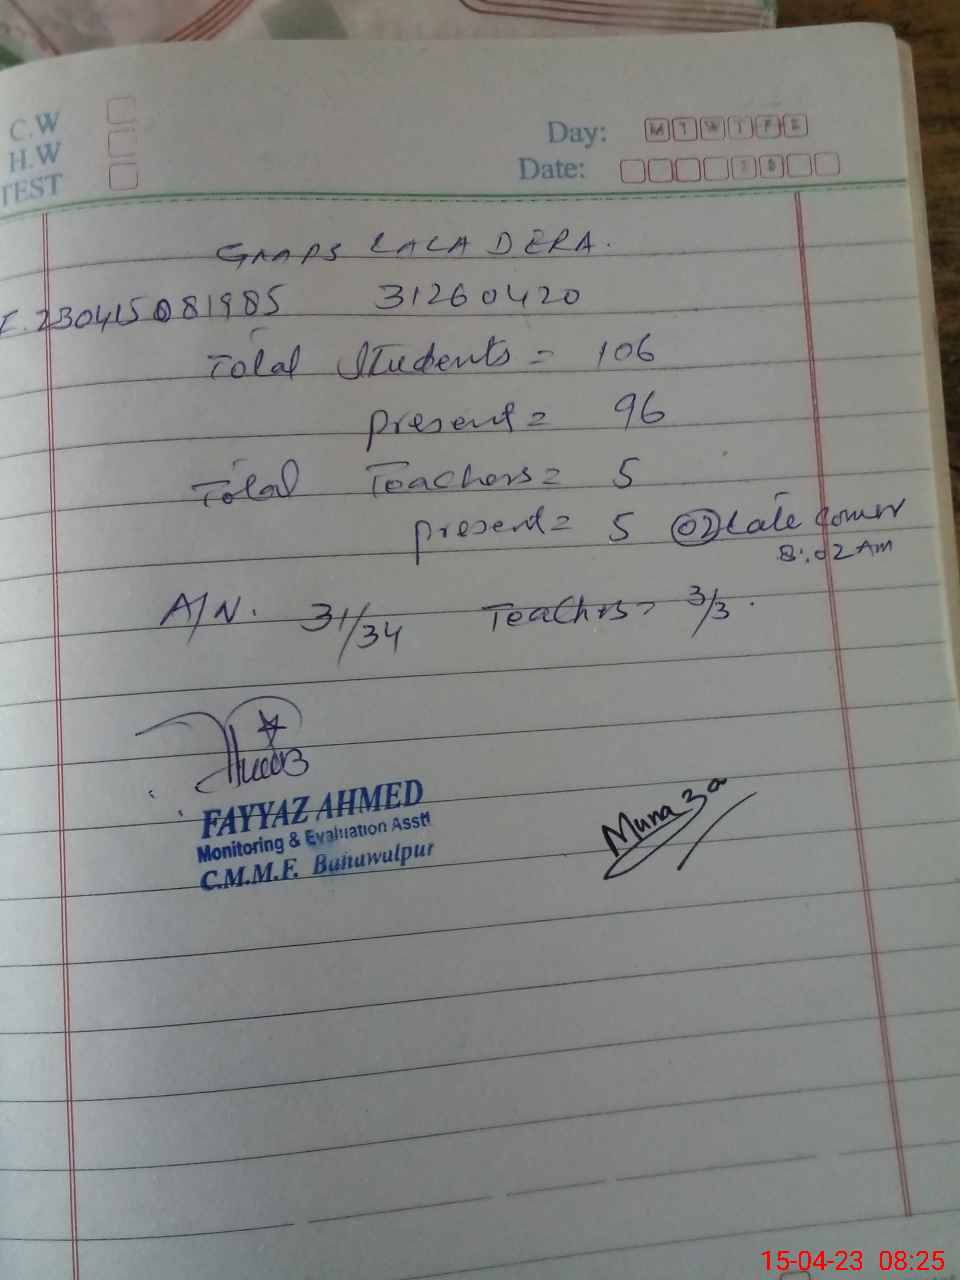 C.W
H.W
TEST
Day: M T W T F S
Date:
GMMPS LALA DERA.
230415081985 31260420
Total Students = 106
Present = 96
Total Teachers = 5
Present = 5 02 Late Comer
8:02 AM
A/N. 31/34 Teachers = 3/3.
FAYYAZ AHMED
Monitoring & Evaluation Asstt
C.M.M.F. Bahawalpur
Munaza
15-04-23 08:25